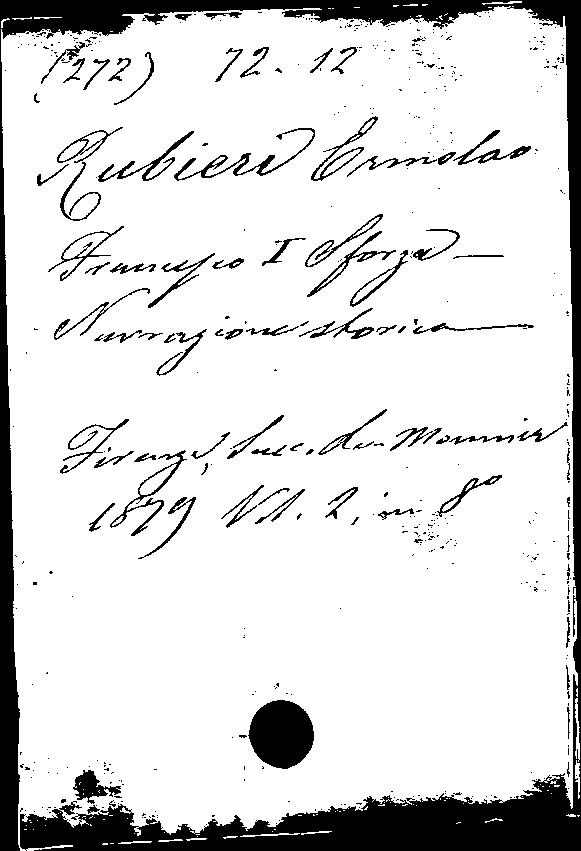 (272) 72-12
Rubieri Ermolao
Francesco I Sforza —
Narrazione storica —
Firenze, Succ. Le Monnier
1879 Vol. 2, in 8º